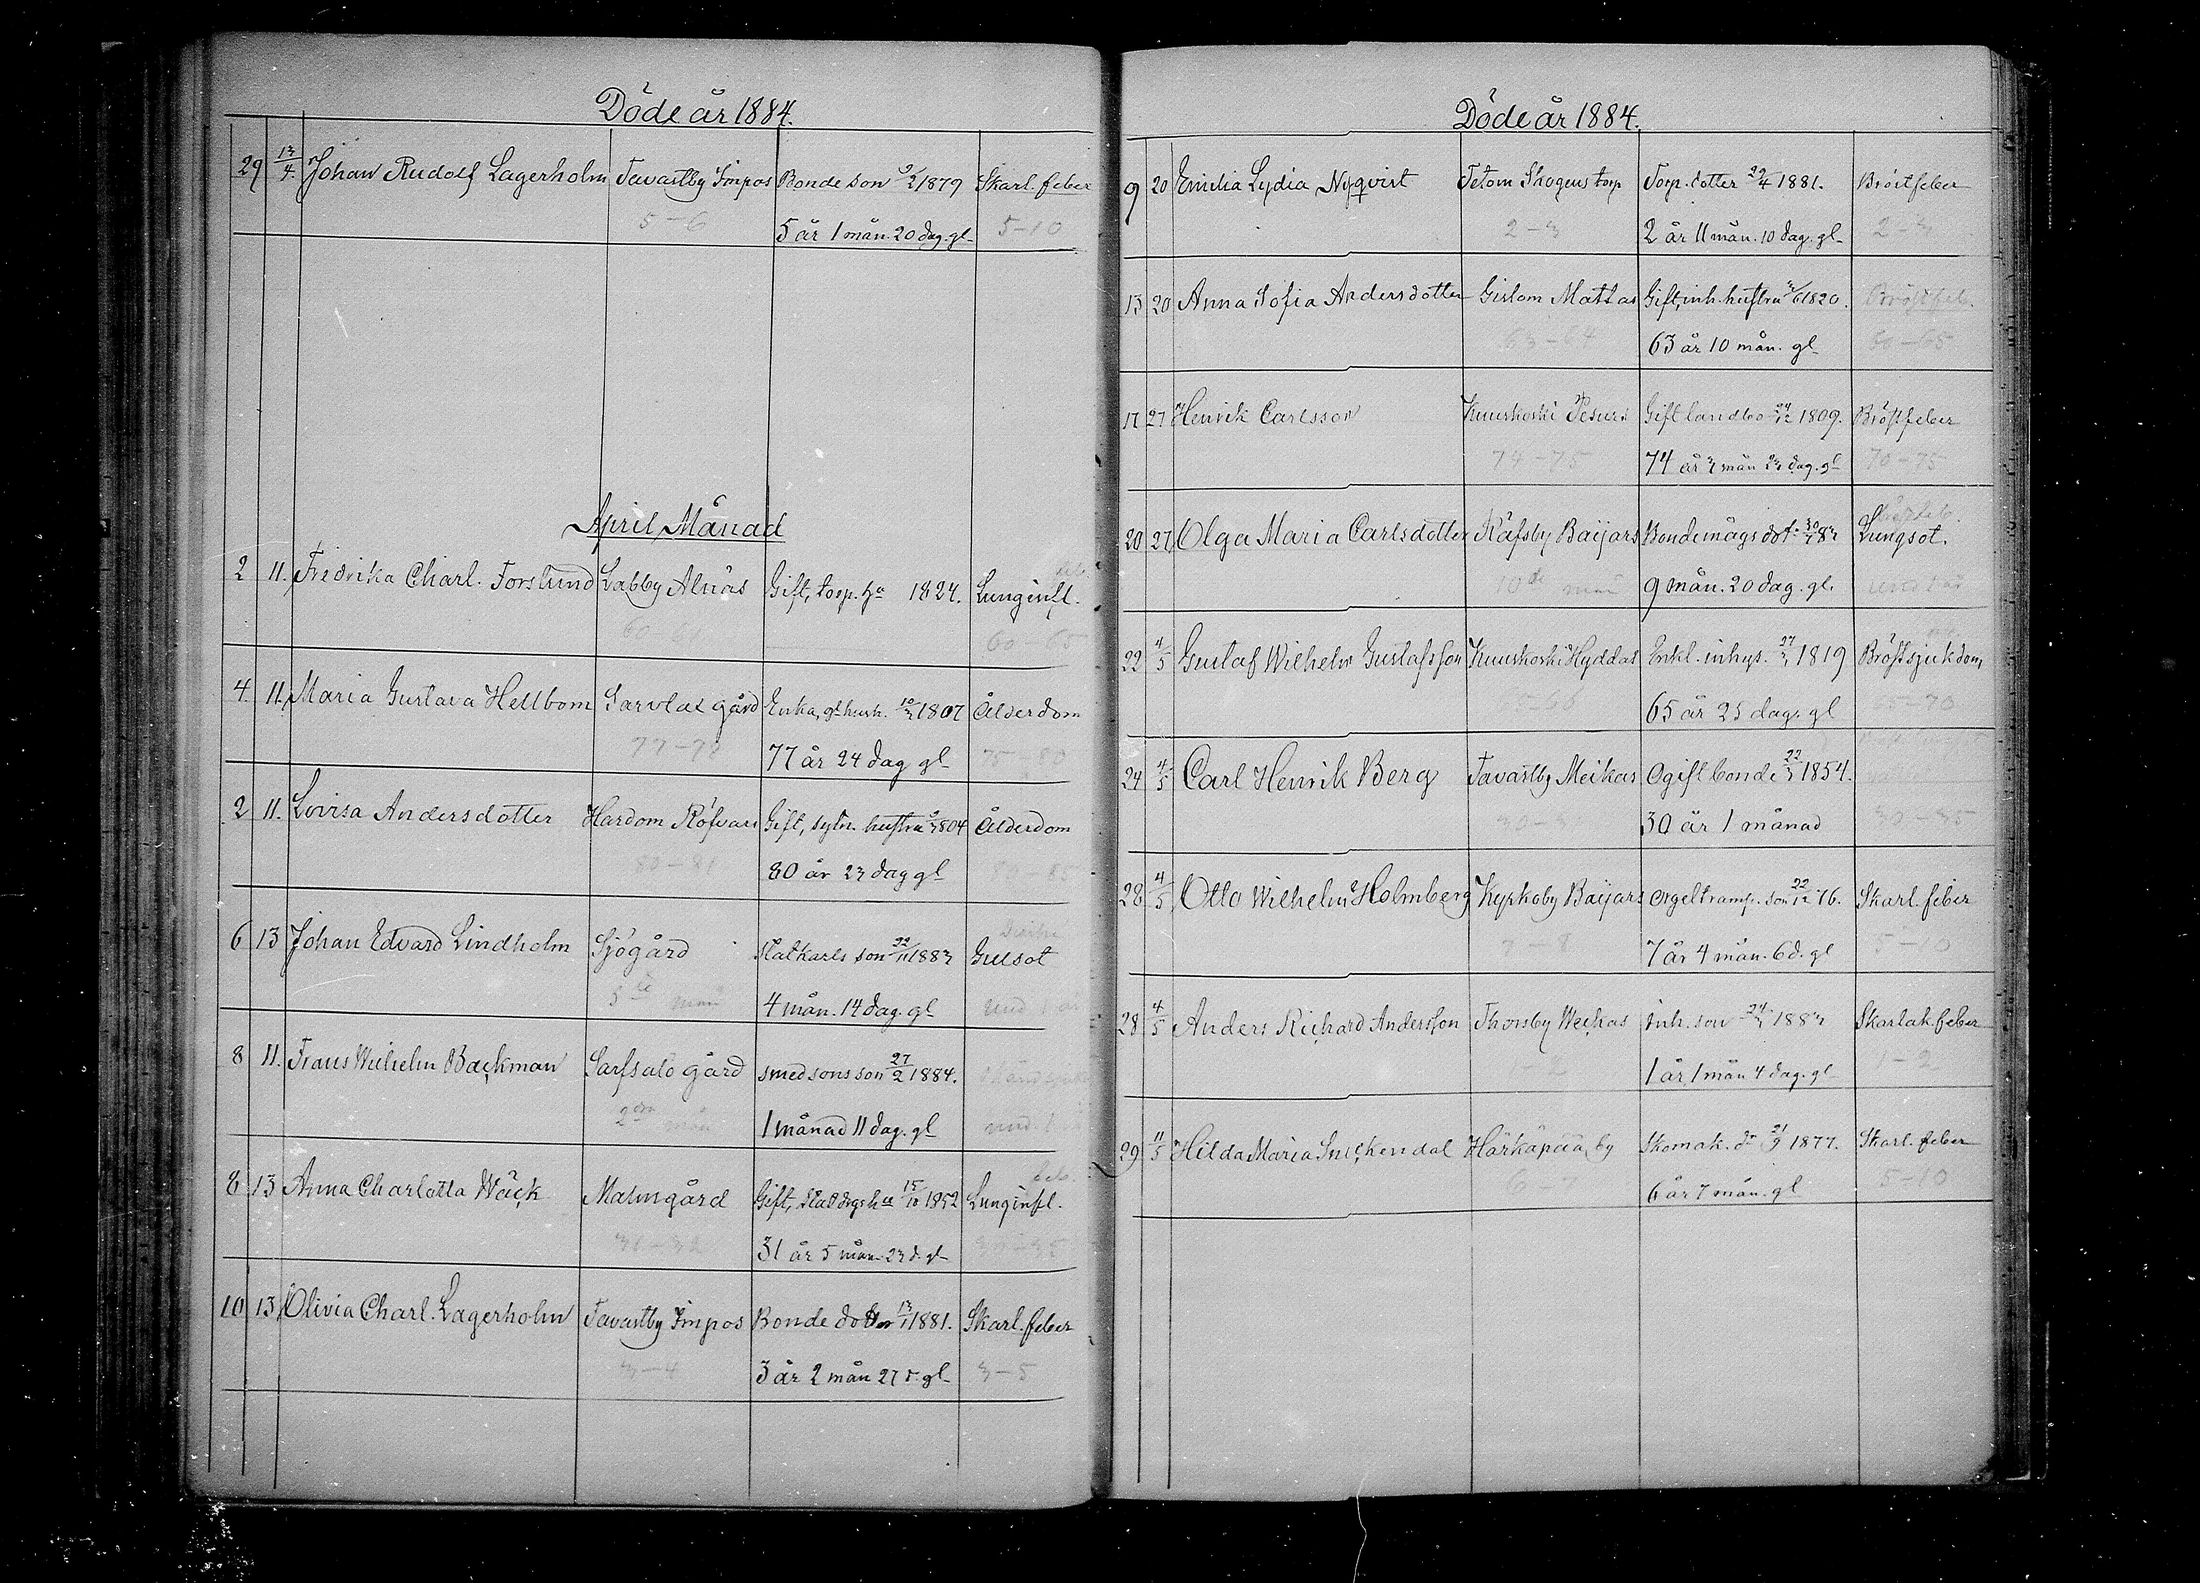 Döde år 1884.
29 13/4. Johan Rudolf Lagerholm Tavastby Simpos Bonde son 9/2 1879 Skarl. feber
5-6 5 år 1 mån. 20 dag. gl 5-10
April Månad
2 11. Fredrika Charl. Forslund Labby Alnäs Gift, torp. hu 1824. Lunginfl.
60-65
4. 11. Maria Gustava Hellbom Sarvlax gård Enka, 1807 Ålderdom
77-78 77 år 24 dag gl 75-80
2 11. Lovisa Andersdotter Hardom Röfvars Gift, sytn. hustru 1804 Ålderdom
80-81 80 år 23 dag gl 80-85
6 13 Johan Edvard Lindholm Sjögård Statkarls son 22/11 1883 Gulsot
5te mån 4 mån. 14 dag. gl und 1 år
8 11. Frans Wilhelm Backman Sarfsalö gård smedsons son 27/2 1884.
2dra mån 1 månad 11 dag. gl und. 1
8 13 Anna Charlotta Wäck Malmgård Gift, statdrgs hu 15/10 1852 Lunginfl.
31-32 31 år 5 mån 23 d. gl 30-35
10 13 Olivia Charl. Lagerholm Tavastby Simpos Bonde dotter 13/1 1881. Skarl. feber
3-4 3 år 2 mån 27 d. gl 3-5
Döde år 1884.
9 20 Emilia Lydia Nyqvist Tetom Skogens torp Torp. dotter 29/4 1881. Bröstfeber
2-3 2 år 11 mån. 10 dag. gl 2-3
13 20 Anna Sofia Andersdotter Gislom Mattas Gift, inh. hustru 1820. Bröstfeb.
63-64 63 år 10 mån. gl 60-65
17 27 Henrik Carlsson Kuuskoski Pesurs Gift landbo 24/12 1809. Bröstfeber
74-75 74 år 3 mån 23 dag. gl 70-75
20 27 Olga Maria Carlsdotter Räfsby Baijars Bondemågs dot. 83 Lungsot.
10de mån 9 mån. 20 dag. gl. und 1 år
22 4/5 Gustaf Wilhelm Gustafsson Kuuskoski Hyddas Enkl. inhys. 27/3 1819 Bröstsjukdom
65-66 65 år 25 dag. gl 65-70
24 4/5 Carl Henrik Berg Tavastby Meikas Ogift bonde 22/3 1854.
30 år 1 månad 30-35
28 4/5 Otto Wilhelm Holmberg Kyrkoby Baijars Orgeltramp. son 22/12 76. Skarl. feber
7-8 7 år 4 mån. 6 d. gl 5-10
28 4/5 Anders Richard Andersson Thorsby Weckas Inh. son 24/3 1883 Skarlak. feber
1 år 1 mån 4 dag. gl 1-2
29 11/5 Hilda Maria Snickendal Härkäpää by Skomak. dr 21/9 1877. Skarl. feber
6-7 6 år 7 mån. gl 5-10